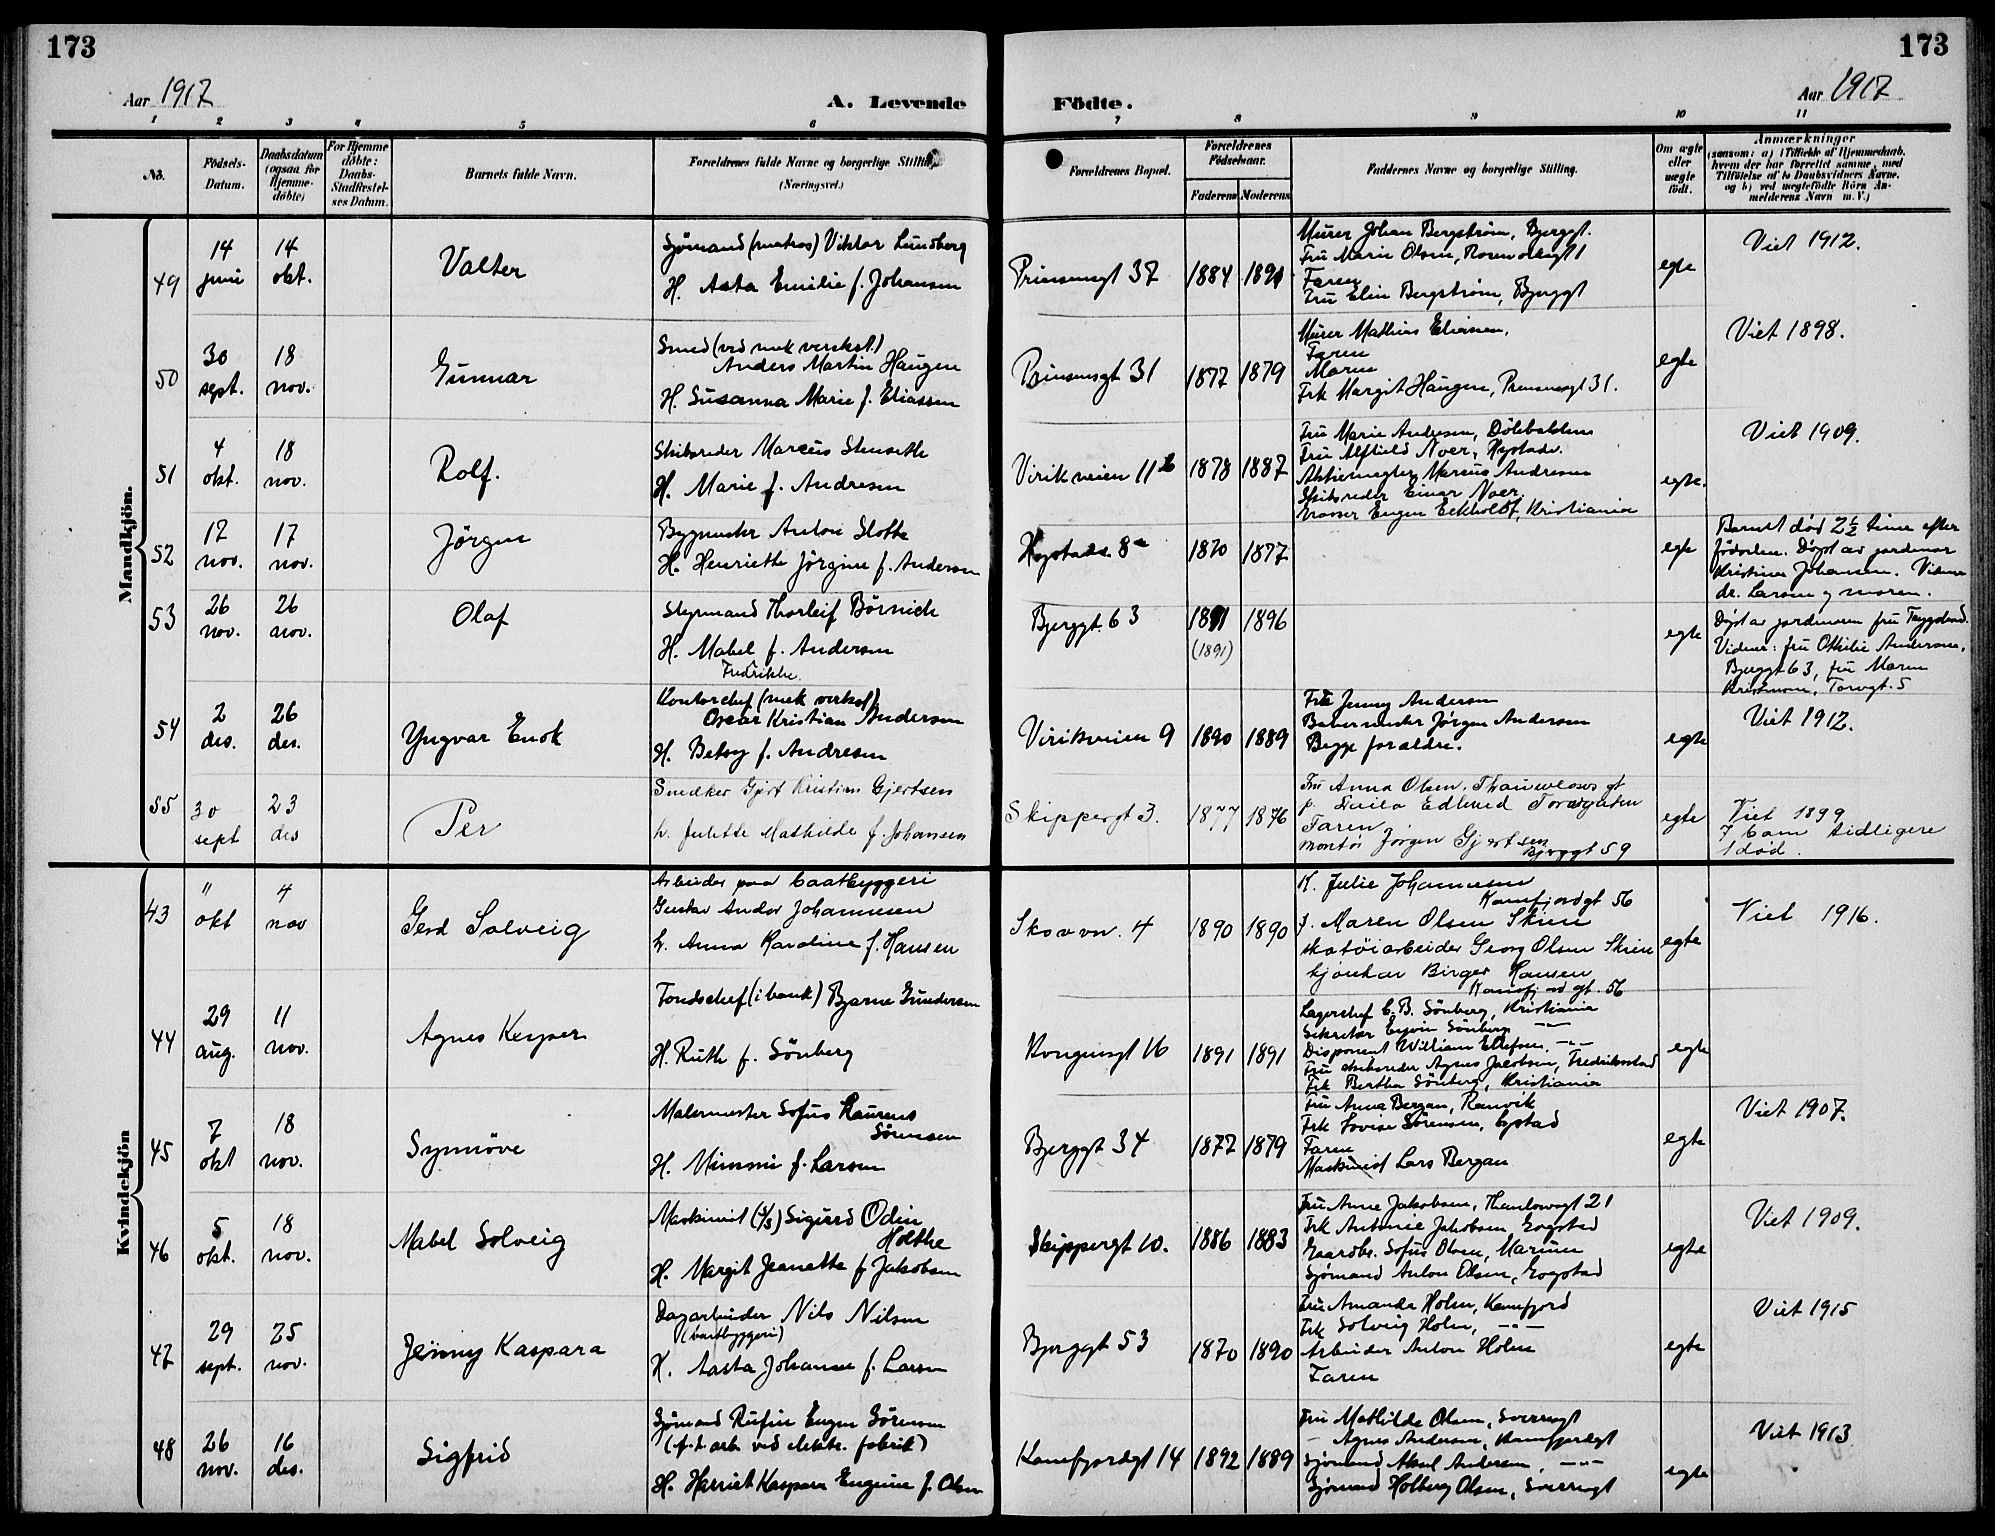 173
Aar 1917
A. Levende
1 2 3 4 5 6
No.
Födsels-Datum.
Daabsdatum (ogsaa for Hjemme-döbte)
For Hjemme döbte: Daabs-Stadfæstel-ses Datum.
Barnets fulde Navn.
Forældrenes fulde Navne og borgerlige Stilling
(Næringsvei.)
Mandkjön.
49
14 juni
14 okt.
Valter
Sjømand (matros) Viktor Lundberg
H. Asta Emilie f. Johansen
50
30 sept.
18 nov.
Gunnar
Smed (ved mek verkst.)
Anders Martin Haugen
H. Susanna Marie f. Eliassen
51
4 okt.
18 nov.
Rolf.
Skibsreder Marcus Stenseth
H. Marie f. Andresen
52
17 nov.
17 nov.
Jörgen
Bygmester Anton Slotte
H. Henriette Jörgine f. Andersen
53
26 nov.
26 nov.
Olaf
Styrmand Thorleif Börnick
H. Mabel f. Andersen
Fredrikke.
54
2 des.
26 des.
Yngvar Enok
Kontorchef (mek verkst)
Oscar Kristian Andersen
H. Betsy f. Andresen
55
30 sept
23 des
Per
Snedker Gjert Kristian Gjertsen
h. Julette Mathilde f. Johansen
Kvindekjön
43
" okt
4 nov
Gerd Solveig
Arbeider paa baatbyggeri
Gustav Andor Johannesen
h. Anna Karoline f. Hansen
44
29 aug.
11 nov.
Agnes Keyser
Fondschef (i bank) Bjarne Gundersen
H. Ruth f. Sönberg
45
7 okt
18 nov.
Synnöve
Malermester Sofus Laurens
Sörensen
H. Mimmi f. Larsen
46
5 okt.
18 nov.
Mabel Solveig
Maskinist (d/s) Sigurd Odin
Holthe
H. Margit Jeanette f Jakobsen
47
29 sept.
25 nov.
Jenny Kaspara
Dagarbeider Nils Nilsen
(baatbyggeri)
H. Aasta Johanne f. Larsen
48
26 nov.
16 des.
Sigfrid
Sjömand Rufin Eugen Sörensen
(f.t. arb. ved elektr. fabrik)
H. Harriet Kaspara Eugenie f. Olsen
173
Aar 1917
Födte.
7 8 9 10 11
Forældrenes Bopæl.
Forældrenes Födselsaar.
Faderens Moderens
Faddernes Navne og borgerlige Stilling.
Om ægte eller uægte födt.
Anmærkninger
(saasom: a) i Tilfælde af Hjemmedaab,
hvem der har forrettet samme, med
Tilföielse af to Daabsvidners Navne.
og b) ved uægtefödte Börn An-
melderens Navn m. V.)
Prinsensgt 37
1884 1891
Murer Johan Bergström, Bjerggt.
Fru Marie Olsen, Rosenvoldsgt 1
Faren
Fru Elin Bergström, Bjerggt
egte
Viet 1912.
Prinsensgt 31
1877 1879
Murer Mathias Eliassen,
Faren
Moren
Frk Margit Haugen, Prinsensgt 31.
egte
Viet 1898.
Virikveien 11b
1878 1887
Fru Marie Andresen, Dölebakken
Fru Alfhild Noer, Hystadv.
Aktiemegler Marcus Andresen
Skibsreder Einar Noer.
Eugen Eckholdt, Kristiania
egte.
Viet 1909.
Hystadv. 8a
1870 1877
egte
Barnet död 2½ time efter
födselen. Döpt av jordmor
Kristine Johansen. Vidner
dr. Larsen og moren.
Bjerggt. 63
1891 1896
(1891)
egte
Döpt av jordmoren fru Trygstad.
Vidner: fru Othilie Andersen,
Bjerggt 63, fru Maren
Kristensen, Torvgt. 5
Virikveien 9
1890 1889
Frk Jenny Andersen
Bakermester Jörgen Andersen
Begge forældre.
egte
Viet 1912.
Skippergt 3.
1877 1876
Fru Anna Olsen. Thaulowsgt
f. Laila Edlund Torvgaten
Faren
montör Jörgen Gjertsen
Bjerggt 59
egte
Viet 1899
7 barn tidligere
1 död.
Skovvn. 4
1890 1890
K. Julie Johannesen
Kamfjordgt 56
f. Maren Olsen Skien
skotöiarbeider Georg Olsen Skien
Sjömand Birger Hansen
Kamfjordgt. 56
egte
Viet 1916.
Kongensgt 16
1891 1891
Lagerchef C. B. Sönberg, Kristiania
Sekretær Eyvin Sönberg —"—
Disponent William Ellefsen, —"—
Fru skibsreder Agnes Jacobsen, Fredriksstad
Frk Bertha Sönberg, Kristiania
egte
Bjerggt 34
1877 1879
Fru Anna Bergan, Ranvik
Frk Lovise Sörensen, Gogstad
Faren
Maskinist Lars Bergan
egte
Viet 1907.
Skippergt 10.
1886 1883
Fru Anne Jakobsen, Thaulowsgt 21
Frk Antonie Jakobsen, Gogstad
Gaardbr. Sofus Olsen, Marum
Sjömand Anton Olsen, Gogstad
egte
Viet 1909.
Bjerggt 53
1870 1890
Fru Amanda Holm, Kamfjord
Frk Solveig Holm, —"—
Arbeider Anton Holm
Faren
egte
Viet 1915
Kamfjordgt 14
1892 1889
Fru Mathilde Olsen, Sverresgt
— Agnes Andersen, Kamfjordgt
Sjömand Aksel Andersen, —"—
Sjömand Holberg Olsen, Sverresgt
egte
Viet 1913